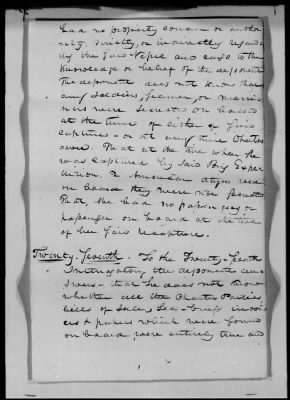 had no property concern or autho
rity, directly, or indirectly regard
ing the said vessel and cargo to the
knowledge or belief of the deponent
The deponent does not know that
any Soldiers, or mari
ners were Secreted on board
at the time of either of said
captures - or at any time
ever. That at the time when she
was captured by said Brig
American were
on board they were not Secreted
That she had no passengers or
passenger on board at the time
of her said
Twenty-Seventh. To the Twenty-Seventh
Interrogatory the deponent ans
swers - that he does not know
whether all the Charter Parties,
bills of Sale, Sea-briefs invoi
ces & papers which were found
on board were entirely true and